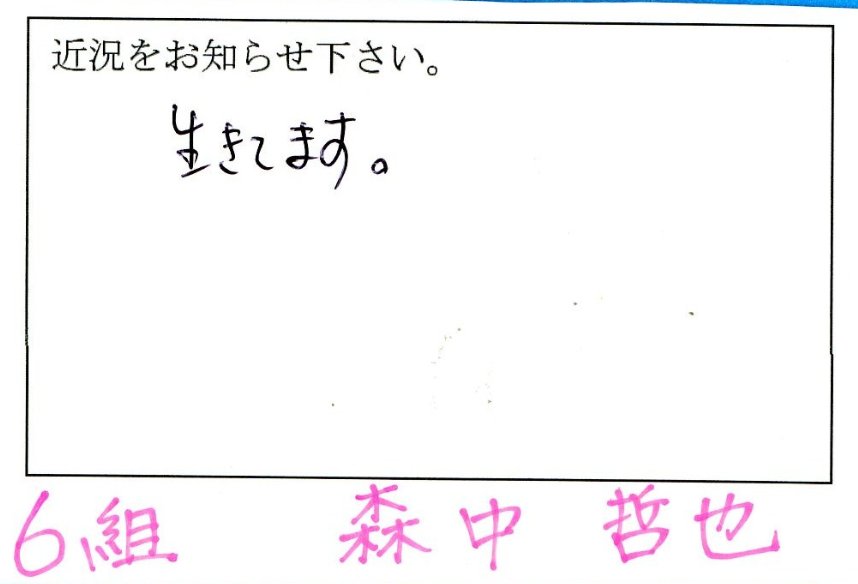 近況をお知らせ下さい。
生きてます。
6組 森中 哲也